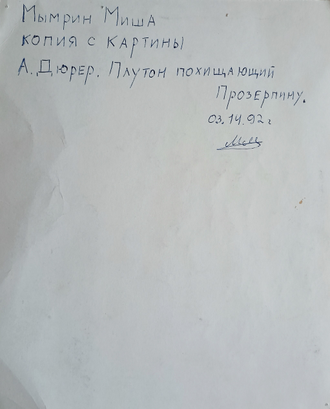 Мымрин Миша
копия с картины
А. Дюрер. Плутон похищающий
Прозерпину.
03.14.92 г